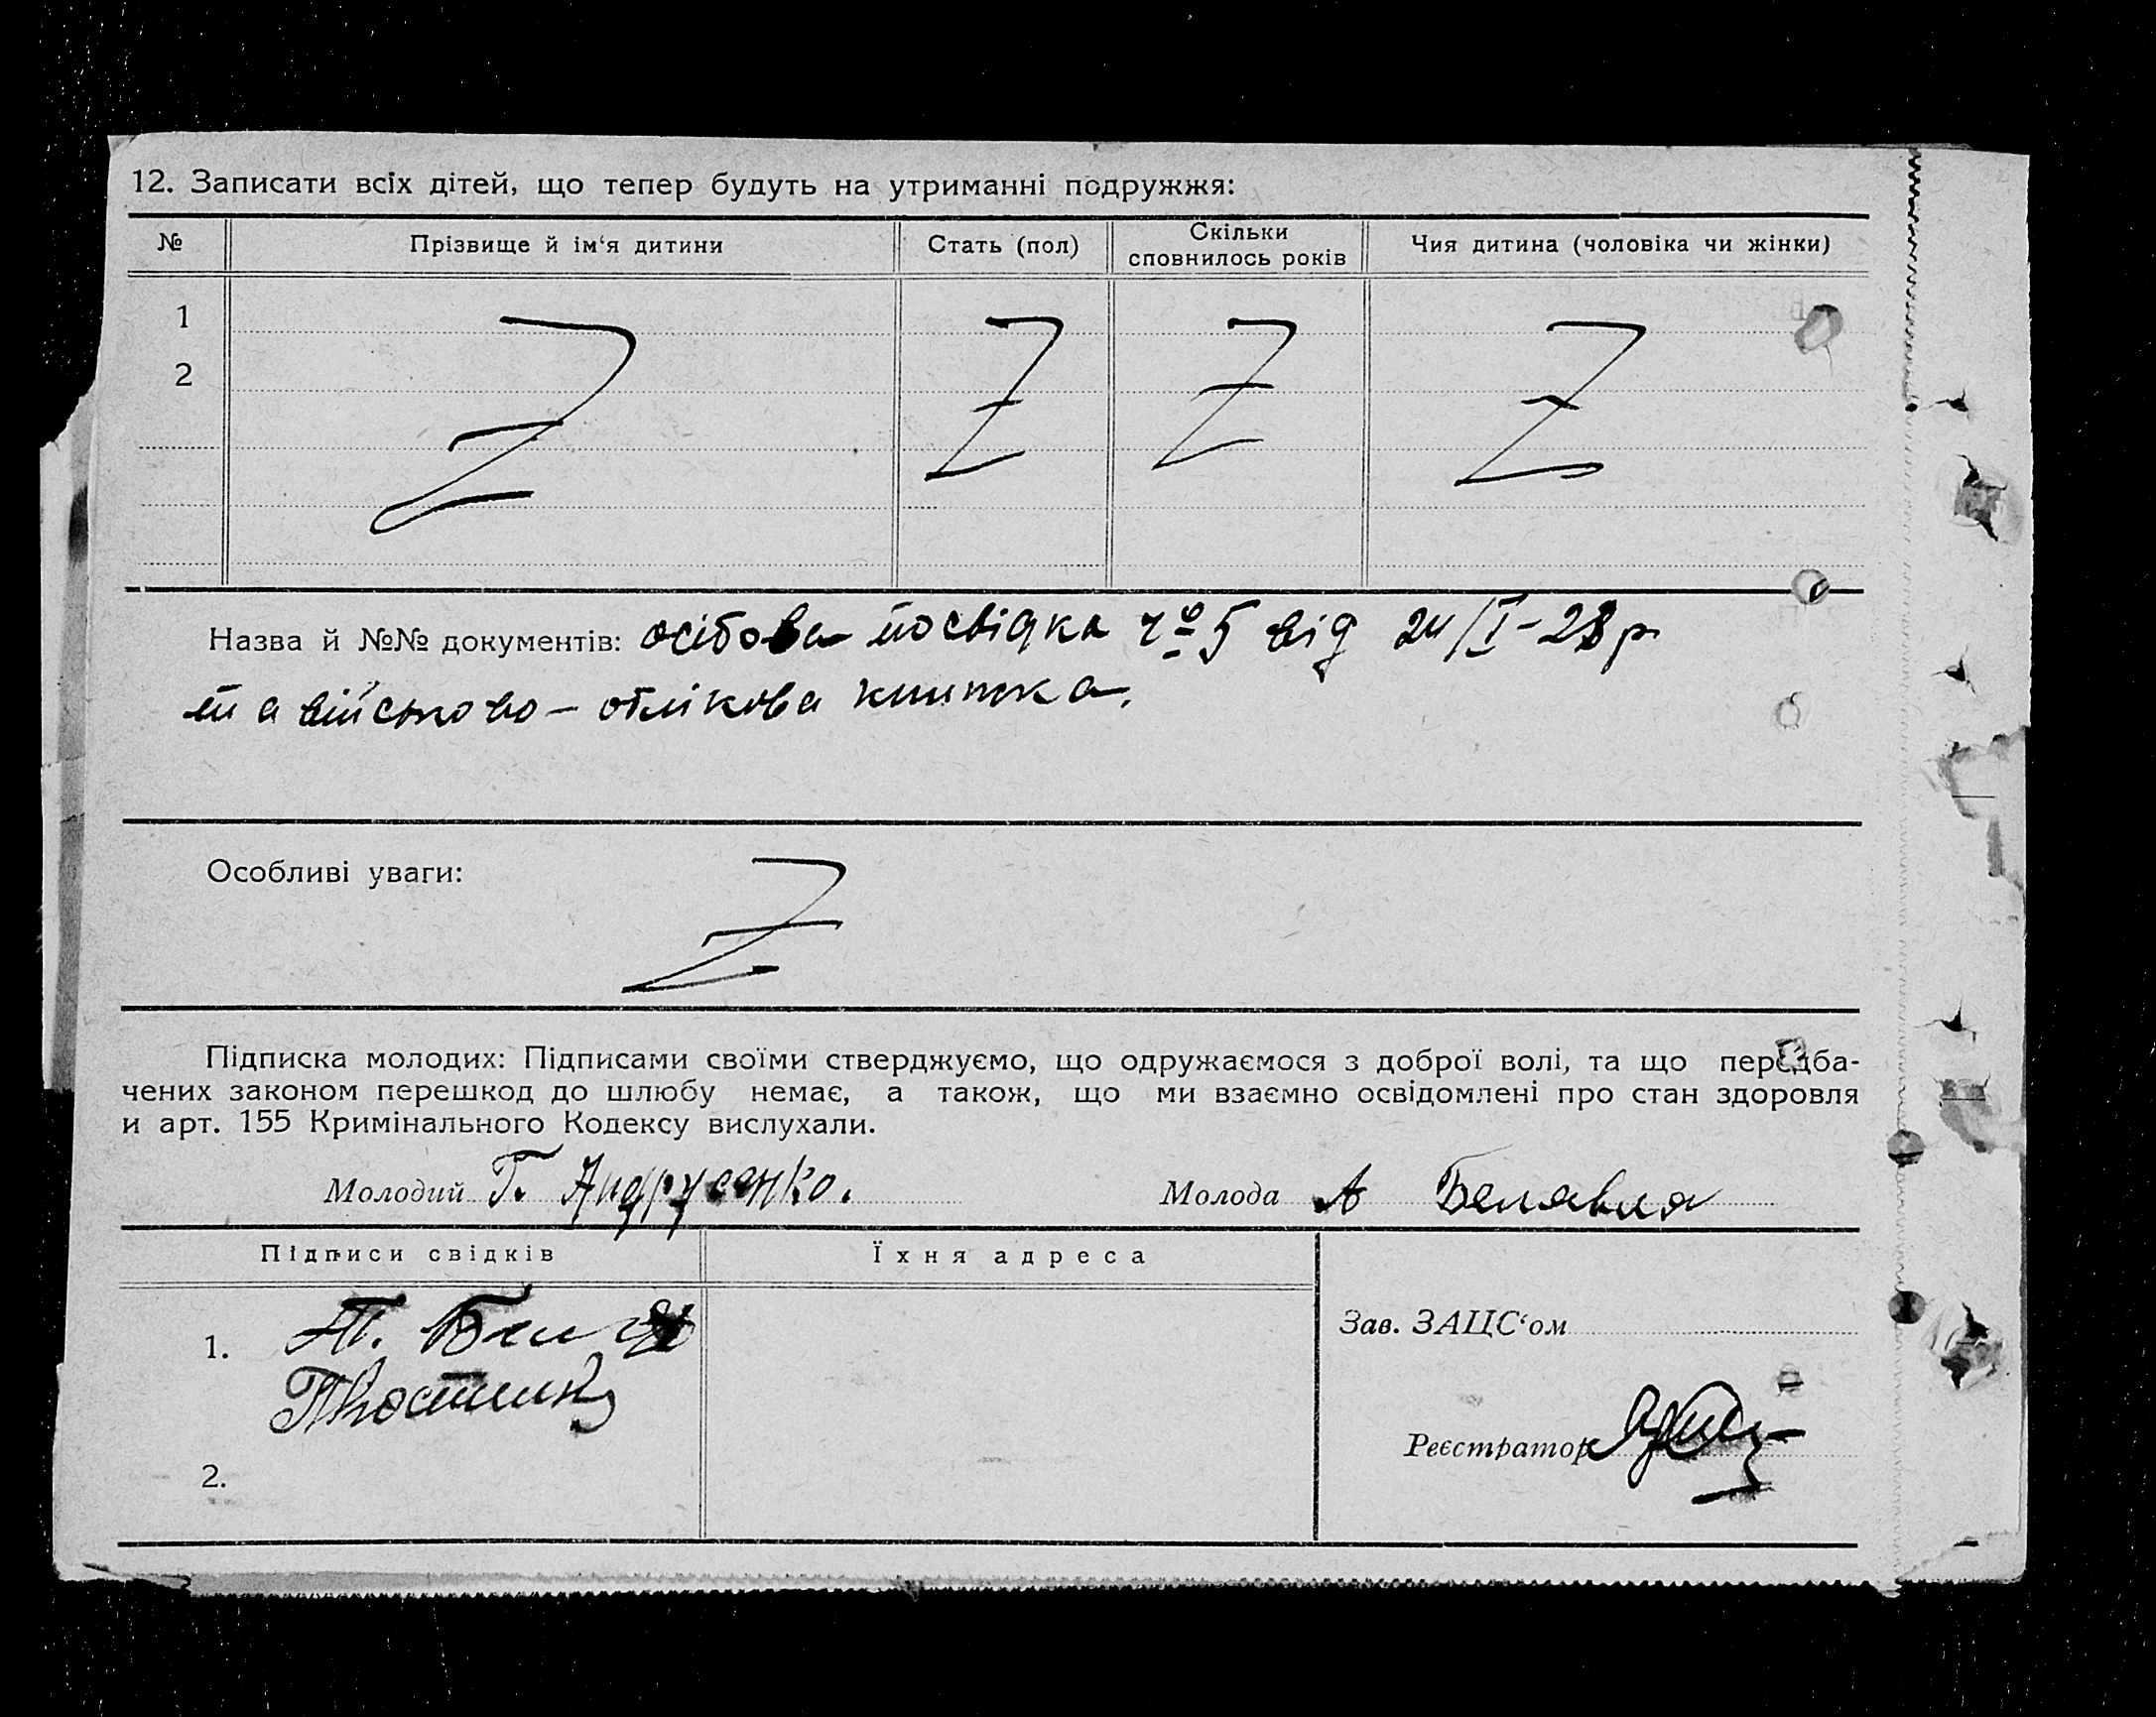 12. Записати всіх дітей, що тепер будуть на утриманні подружжя:
№ Прізвище й ім‘я дитини Стать (пол) Скільки сповнилось років Чия дитина (чоловіка чи жінки)
1
2
Назва й №№ документів: осібова посвідка ч⁰ 5 від 24/I-28 р
та військово-облікова книжка.
Особливі уваги:
Підписка молодих: Підписами своїми стверджуємо, що одружаємося з доброї волі, та що передба-
чених законом перешкод до шлюбу немає, а також, що ми взаємно освідомлені про стан здоровля
и арт. 155 Кримінального Кодексу вислухали.
Молодий Г. Андрусенко. Молода А Белявня
Підписи свідків Їхня адреса
Зав. ЗАЦС‘ом
1.
Реєстратор
2.